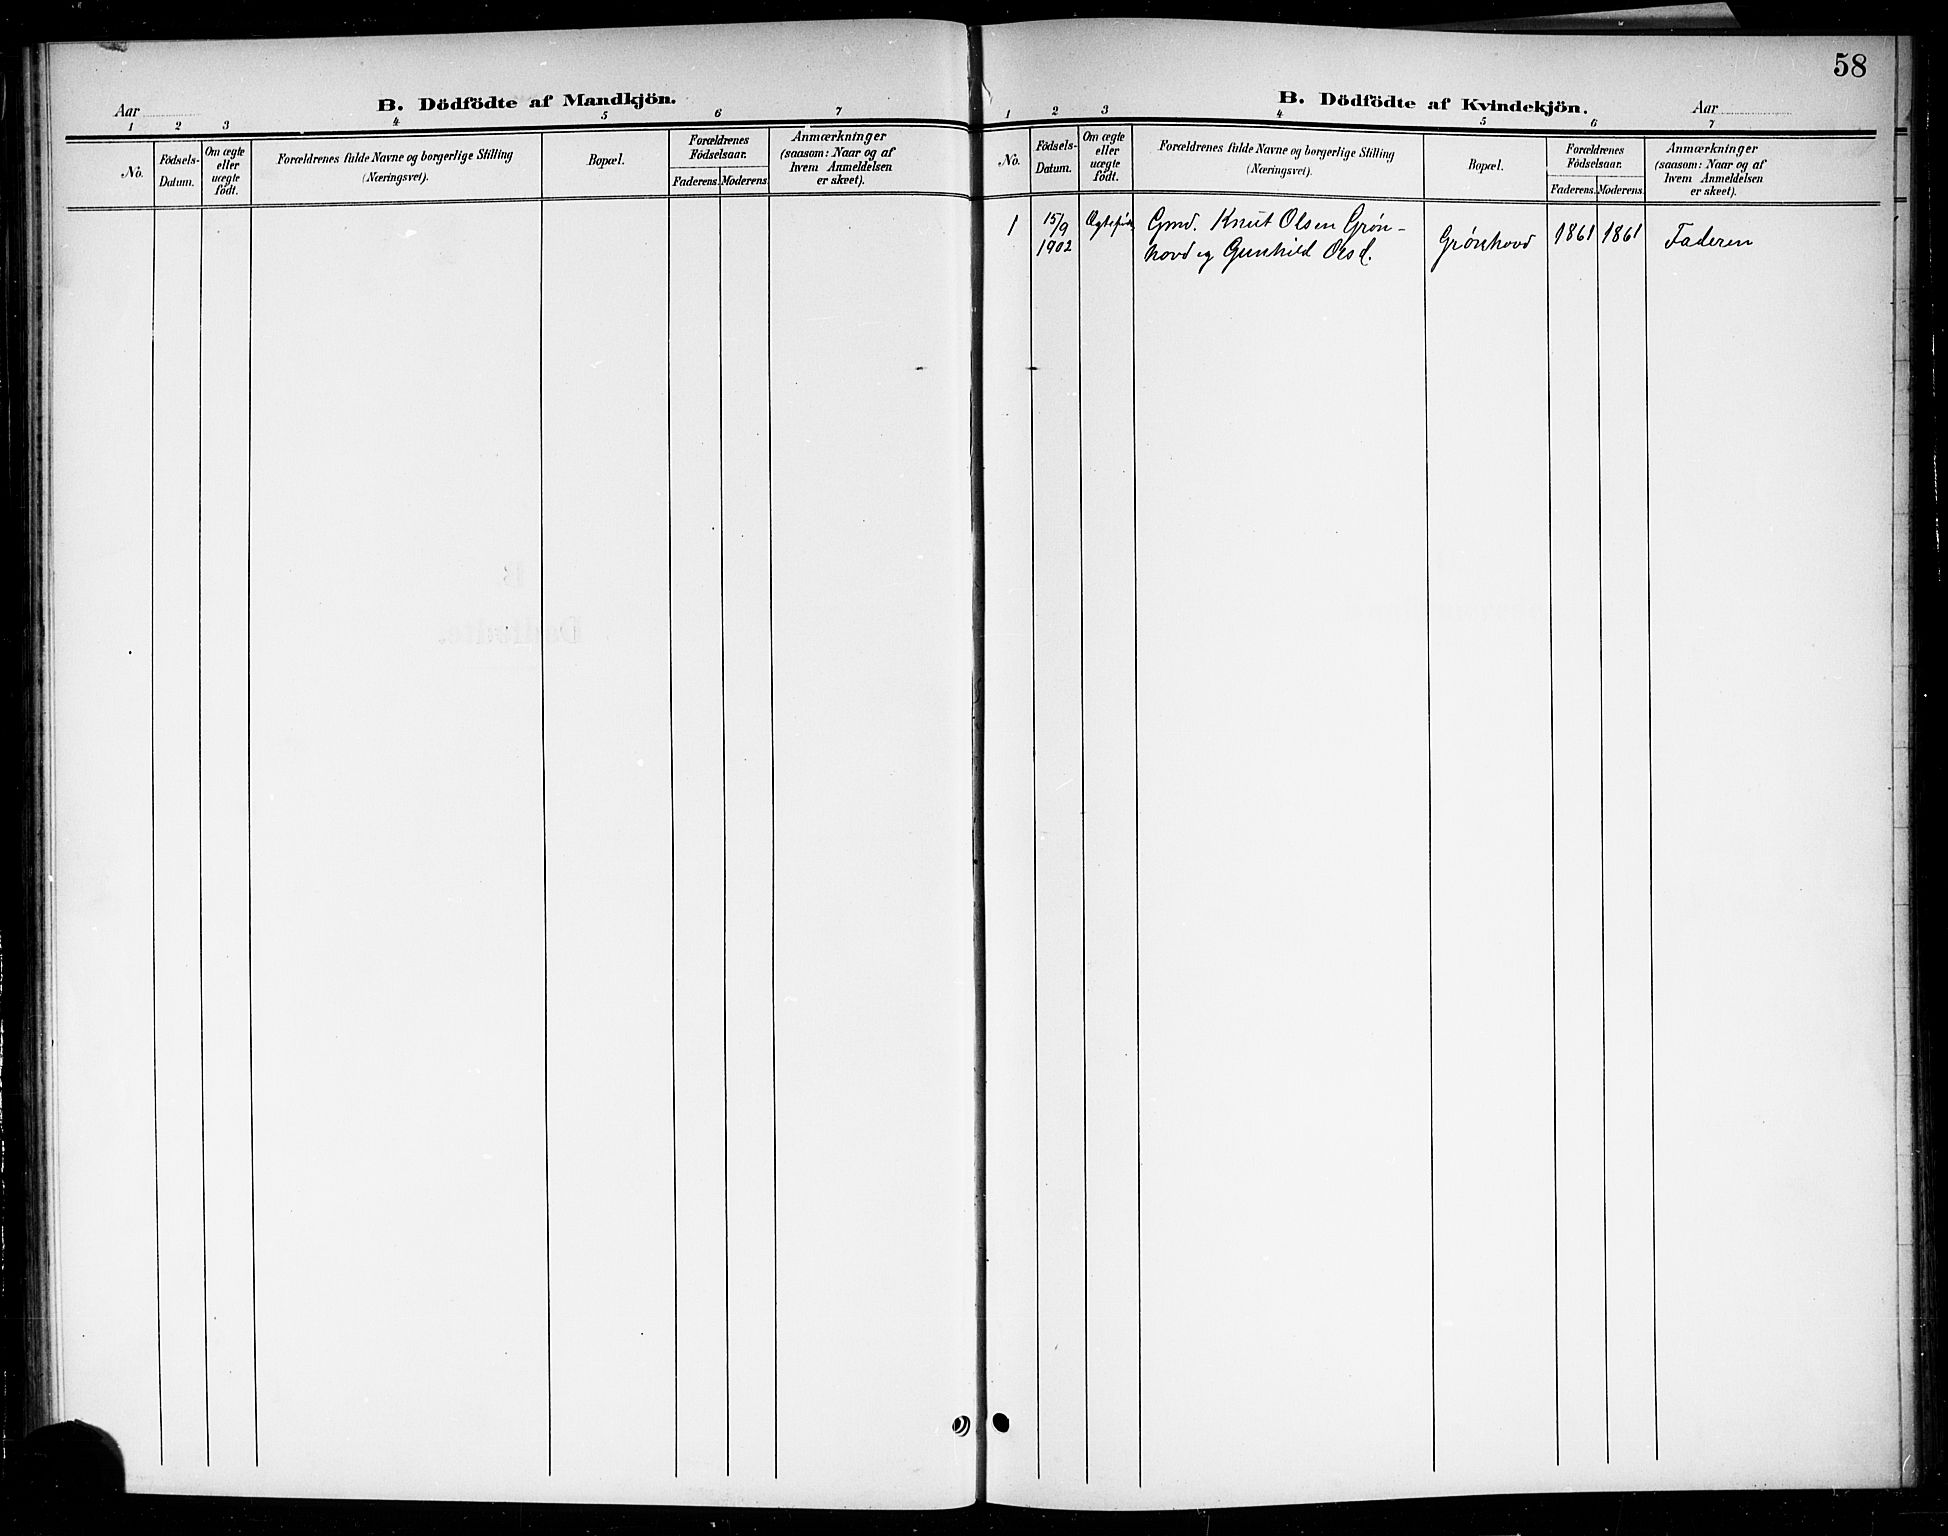 58
B. Dödfödte af Mandkjön.
Aar
1 2 3 4 5 6 7
No.
Födsels-
Datum.
Om ægte
eller
uægte
födt.
Forældrenes fulde Navne og borgerlige Stilling
(Næringsvei).
Bopæl.
Forældrenes
Födselsaar.
Faderens. Moderens.
Anmærkninger
(saasom: Naar og af
hvem Anmeldelsen
er skeet).
B. Dödfödte af Kvindekjön.
Aar
1 2 3 4 5 6 7
No.
Födsels-
Datum.
Om ægte
eller
uægte
födt.
Forældrenes fulde Navne og borgerlige Stilling
(Næringsvei).
Bopæl.
Forældrenes
Födselsaar.
Faderens. Moderens.
Anmærkninger
(saasom: Naar og af
hvem Anmeldelsen
er skeet).
1
15/9
1902
Ægtefødt
Gmd. Knut Olsen Grøn-
hovd og Gunhild Olsd.
Grønhovd
1861
1861
Faderen